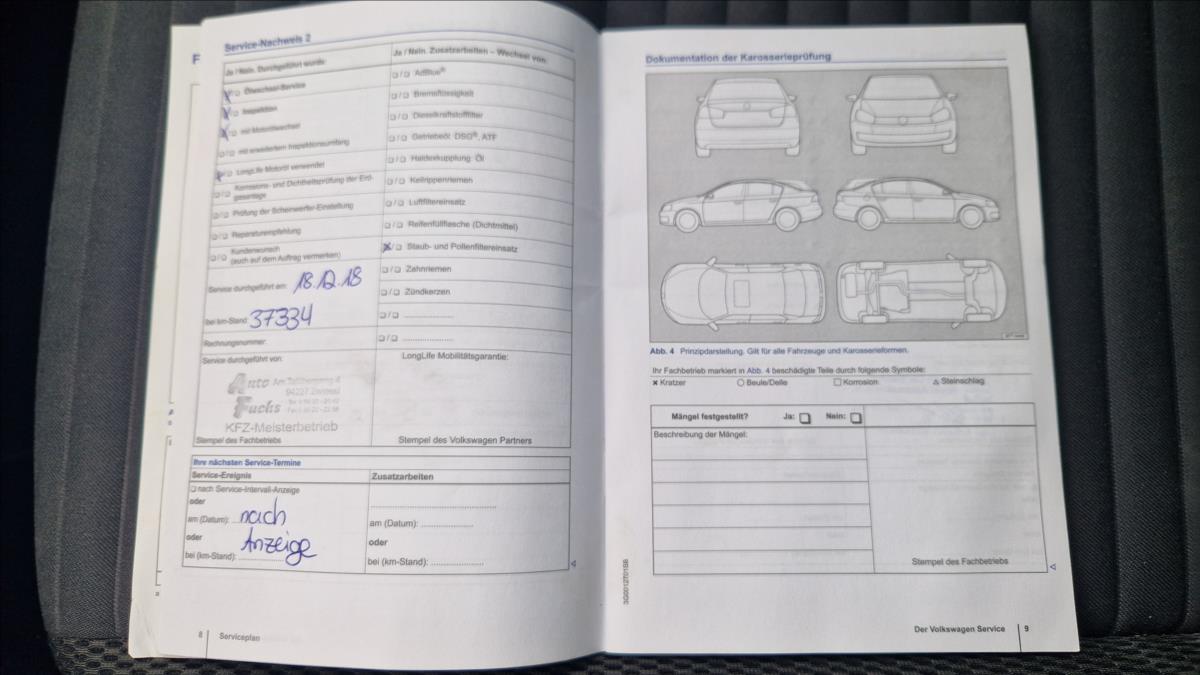 Service-Nachweis 2
Ja / Nein. Durchgeführt wurde:
Ölwechsel-Service
Inspektion
mit Motorölwechsel
mit erweitertem Inspektionsumfang
LongLife Motoröl verwendet
Korrosions- und Dichtheitsprüfung der Erd-
gasanlage
Prüfung der Scheinwerfer-Einstellung
Reparaturempfehlung
Kundenwunsch
(auch auf dem Auftrag vermerken)
Service durchgeführt am: 18.12.18
bei km-Stand: 37334
Rechnungsnummer:
Service durchgeführt von:
Auto
Fuchs
KFZ-Meisterbetrieb
Stempel des Fachbetriebs
Ja / Nein. Zusatzarbeiten – Wechsel von:
AdBlue®
Bremsflüssigkeit
Dieselkraftstofffilter
Getriebeöl: DSG®, ATF
Haldexkupplung: Öl
Keilrippenriemen
Luftfiltereinsatz
Reifenfüllflasche (Dichtmittel)
Staub- und Pollenfiltereinsatz
Zahnriemen
Zündkerzen
LongLife Mobilitätsgarantie:
Stempel des Volkswagen Partners
Ihre nächsten Service-Termine
Service-Ereignis
nach Service-Intervall-Anzeige
oder
am (Datum): nach
oder Anzeige
bei (km-Stand):
Zusatzarbeiten
am (Datum):
oder
bei (km-Stand):
8 Serviceplan
Dokumentation der Karosserieprüfung
Abb. 4 Prinzipdarstellung. Gilt für alle Fahrzeuge und Karosserieformen.
Ihr Fachbetrieb markiert in Abb. 4 beschädigte Teile durch folgende Symbole:
Kratzer Beule/Delle Korrosion Steinschlag
Mängel festgestellt? Ja: Nein:
Beschreibung der Mängel:
Stempel des Fachbetriebs
3G0012T01SB
Der Volkswagen Service 9